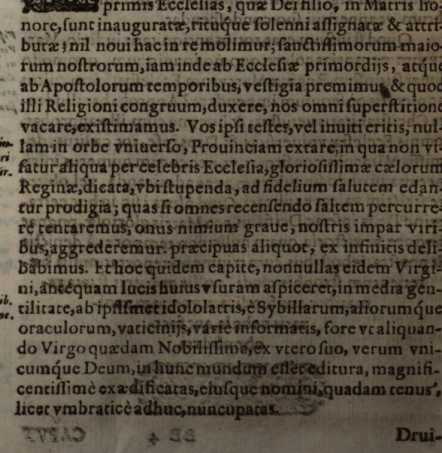 primis Ecclesias, quæ Dei filio, in Matris ho-
nore, sunt inauguratæ, rituque solenni assignatæ & attri-
butæ; nil noui hac in re molimur; sanctissimorum maio-
rum nostrorum, iam inde ab Ecclesiæ primordijs, atque
ab Apostolorum temporibus, vestigia premimus, & quod
illi Religioni congruum, duxere, nos omni superstitione
vacare, existimamus. Vos ipsi testes, vel inuiti eritis, nul-
lam in orbe vniuerso, Prouinciam extare, in qua non vi-
satur aliqua percelebris Ecclesia, gloriosissimæ cælorum
Reginæ, dicata, vbi stupenda, ad fidelium salutem edan-
tur prodigia; quas si omnes recensendo saltem percurre-
re tentaremus, onus nimium graue, nostris impar viri-
bus, aggrederemur. præcipuas aliquot, ex infinitis deli-
babimus. Et hoc quidem capite, nonnullas eidem Virgi-
ni, antequam lucis huius vsuram aspiceret, in media gen-
tilitate, ab ipsismet idololatris, è Sybillarum, aliorumque
oraculorum, vaticinijs, variè informatis, fore vt aliquan-
do Virgo quædam Nobilissima, ex vtero suo, verum vni-
cumque Deum, in hunc mundum esset editura, magnifi-
centissimè exædificatas, eiusque nomini, quadam tenus,
licet vmbraticè adhuc, nuncupatas.
Drui-